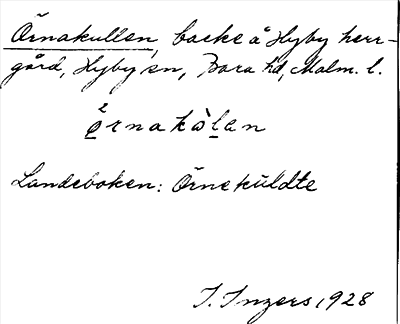 Örnakullen, backe å Hyby herr-
gård, Hyby sn, Bara hd, Malm. l.
ö́rnakòlan
Landeboken: Örneküldte
I. Ingers, 1928